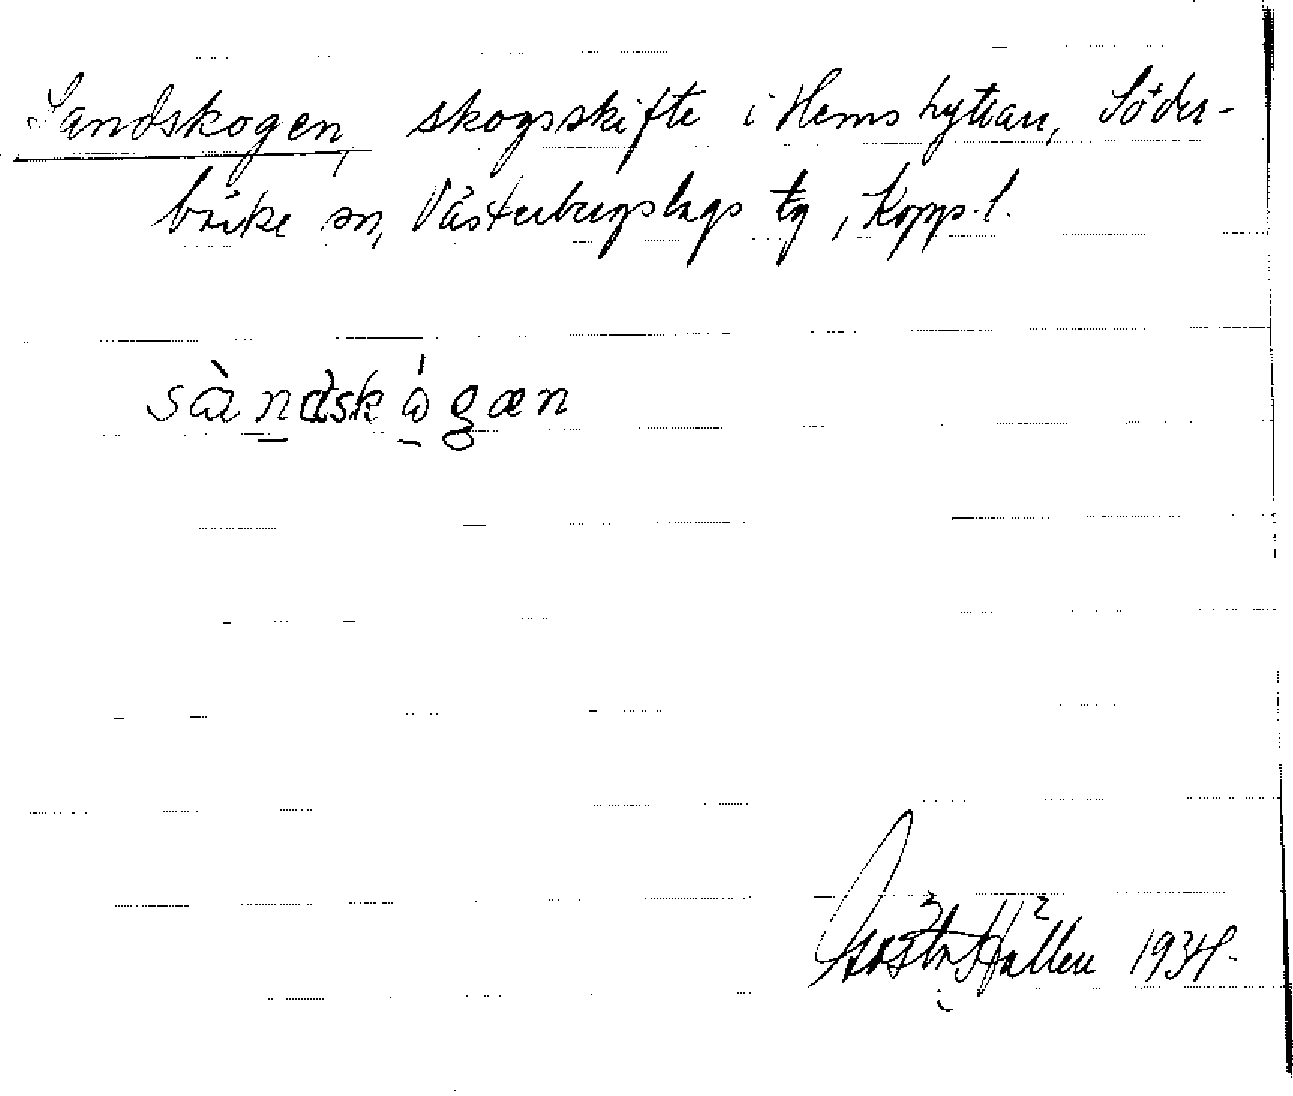 Sandskogen, skogsskifte i Hemshyttan, Söder-
bärke sn, Västerbergslags tg, Kopp. l.
sàndskógæn
Gösta Hållen 1934.